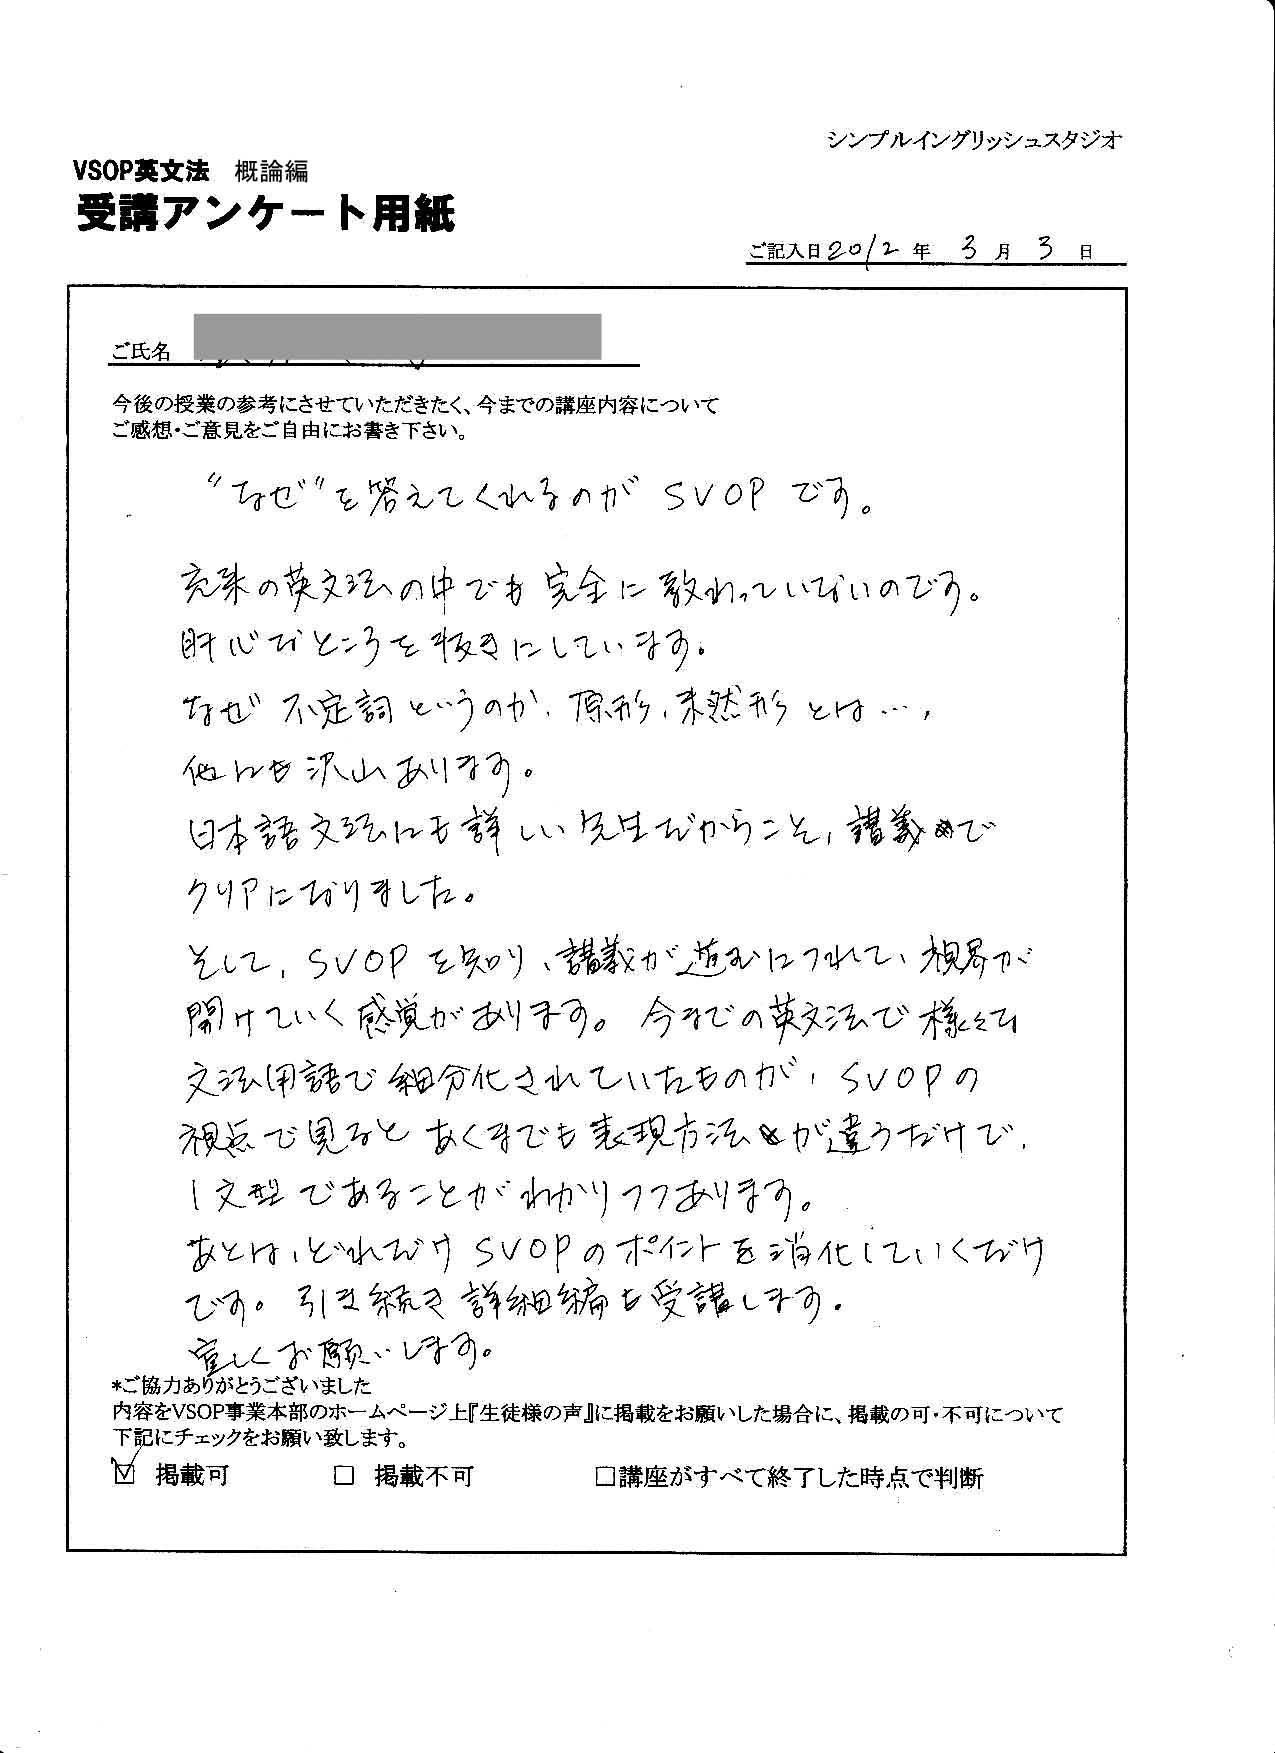 シンプルイングリッシュスタジオ
VSOP英文法 概論編
受講アンケート用紙
ご記入日2012年 3月 3日
ご氏名
今後の授業の参考にさせていただきたく、今までの講座内容について
ご感想・ご意見をご自由にお書き下さい。
"なぜ"を答えてくれるのが SVOP です。
従来の英文法の中でも完全に教わっていないのです。
肝心なところを抜きにしています。
なぜ 不定詞というのか、原形、未然形とは…,
他にも沢山あります。
日本語文法にも詳しい先生だからこそ、講義で
クリアになりました。
そして、SVOP を知り、講義が進むにつれて、視界が
開けていく感覚があります。今までの英文法で様々な
文法用語で細分化されていたものが、SVOPの
視点で見るとあくまでも表現方法が違うだけで、
1文型であることがわかりつつあります。
あとは、どれだけSVOPのポイントを消化していくだけ
です。引き続き詳細編も受講します。
宜しくお願いします。
*ご協力ありがとうございました
内容をVSOP事業本部のホームページ上『生徒様の声』に掲載をお願いした場合に、掲載の可・不可について
下記にチェックをお願い致します。
☑ 掲載可 □ 掲載不可 □講座がすべて終了した時点で判断